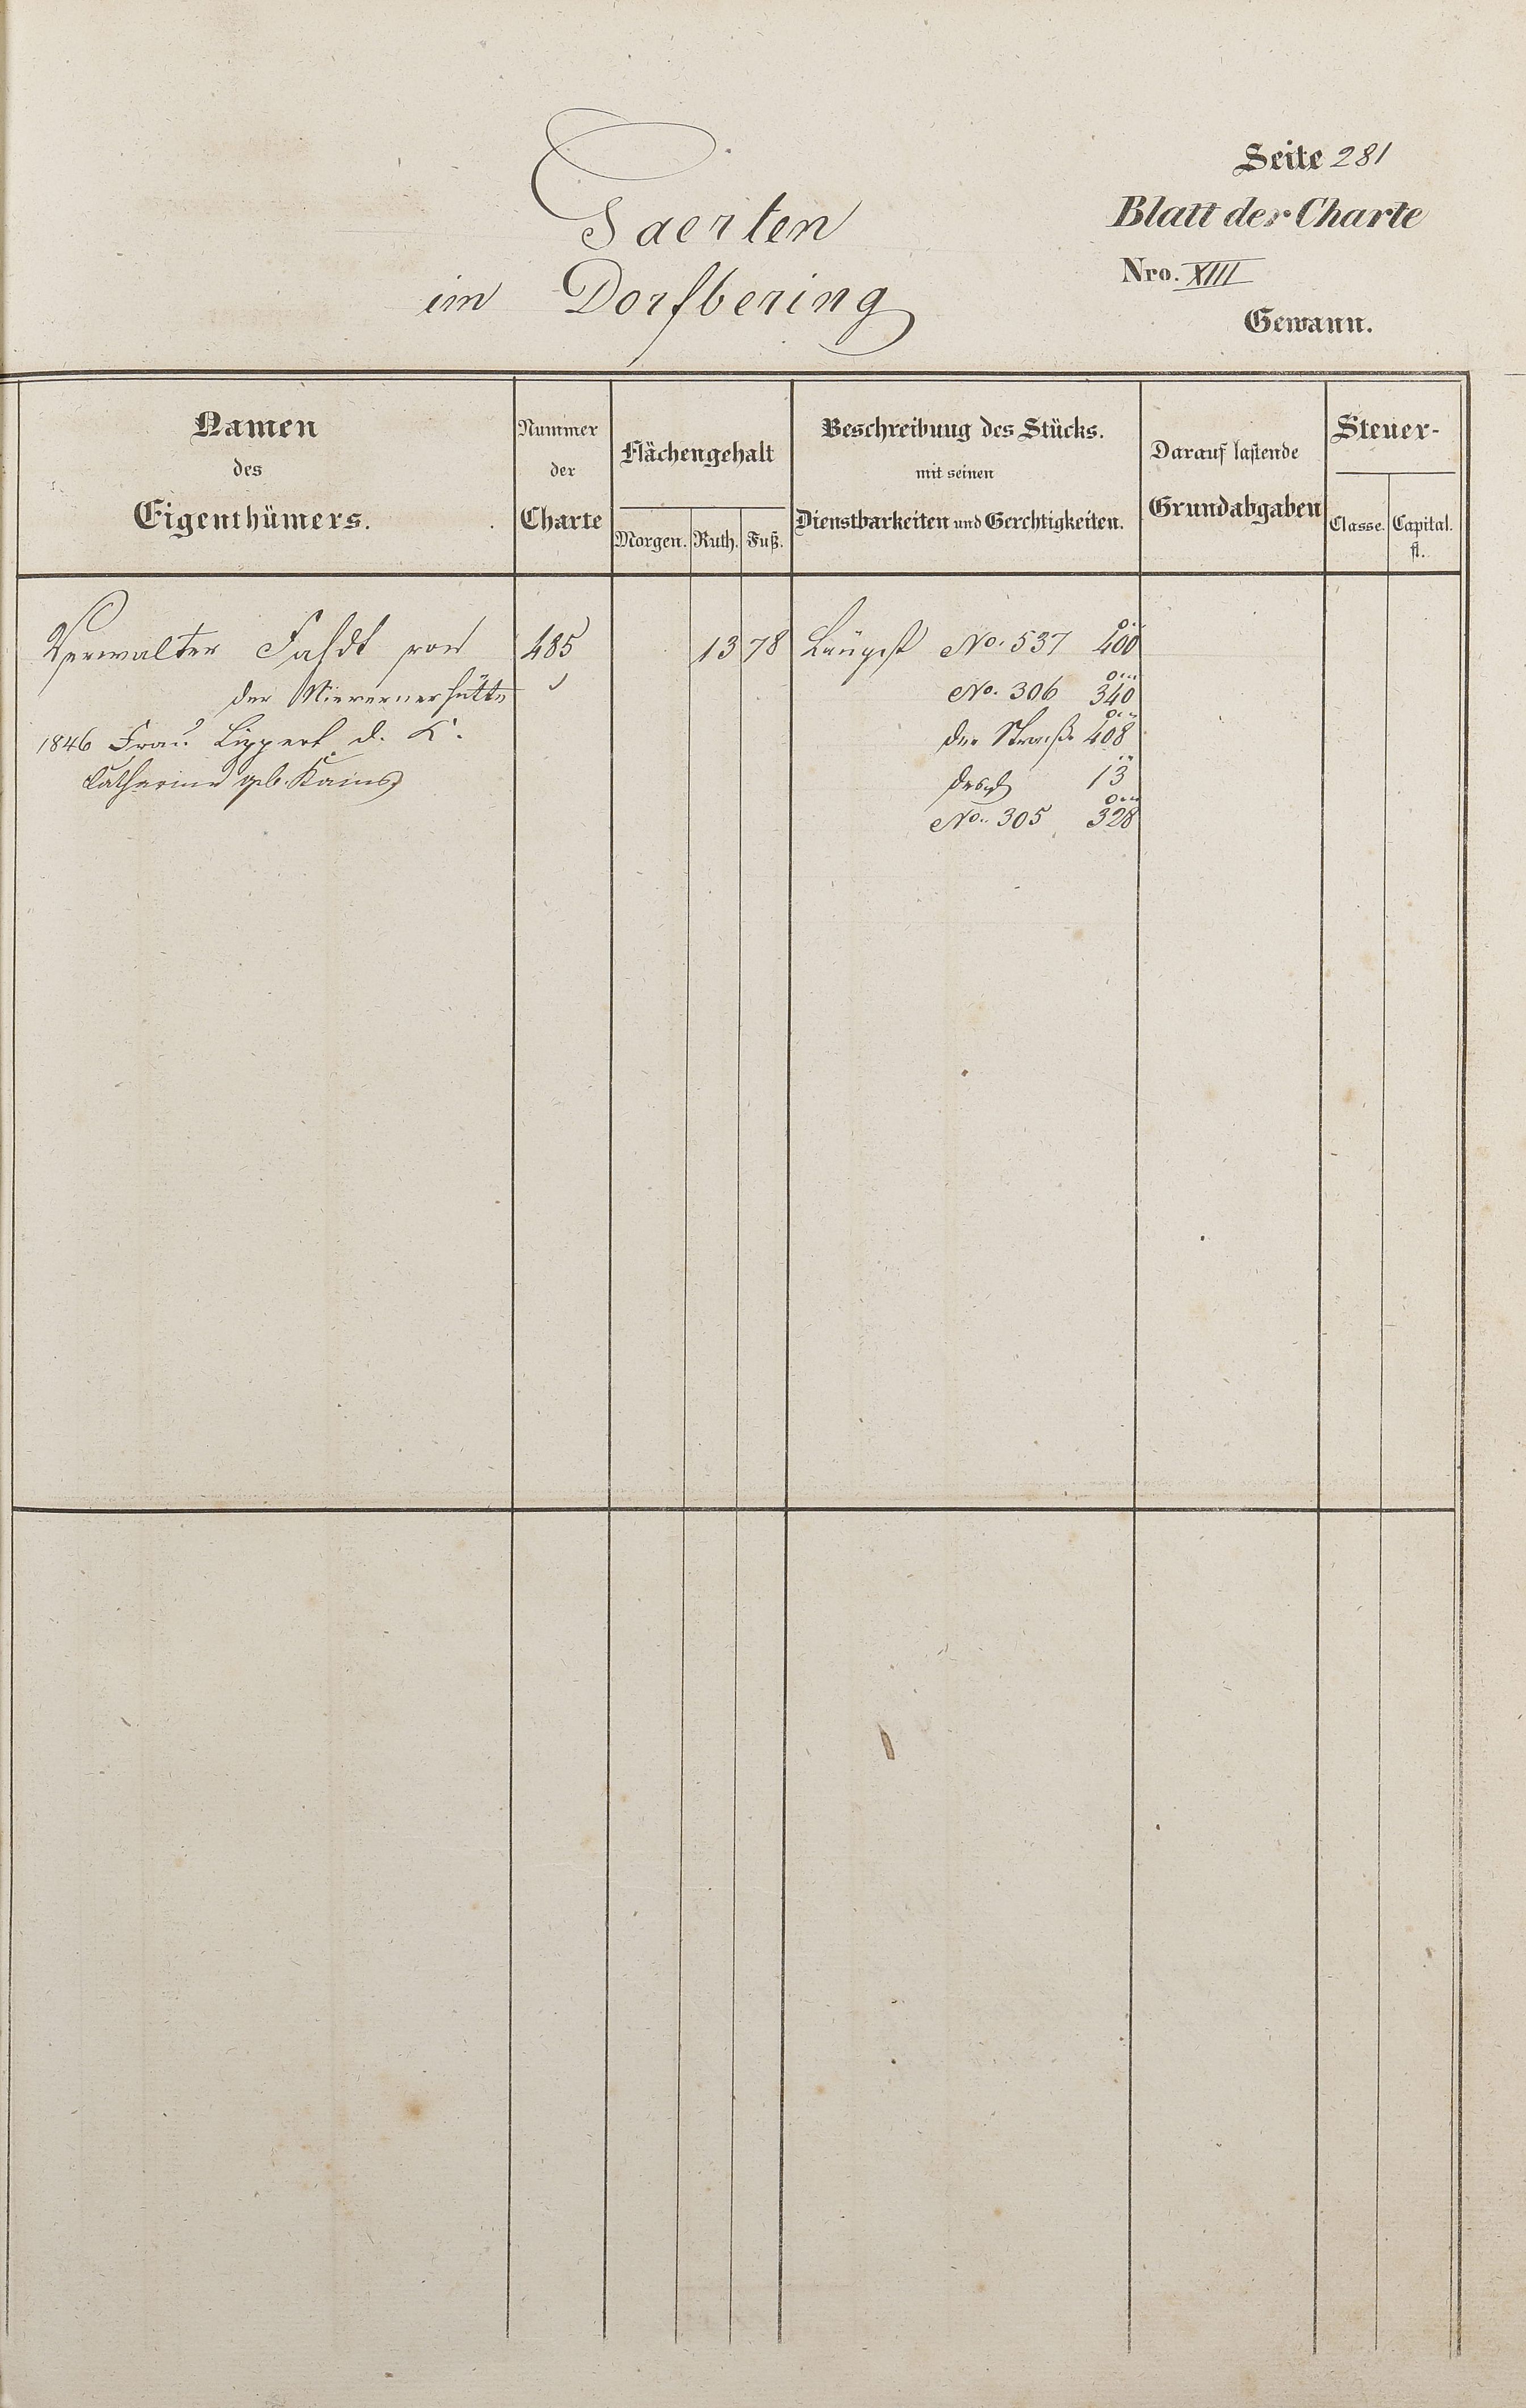 Seite 281
Blatt der Charte
Nro. XIII
Gewann.
Gaerten
im Dorfbering
Namen des Eigenthümers.
Nummer der Charte
Flächengehalt
Morgen. Ruth. Fuß.
Beschreibung des Stücks.
mit seinen
Dienstbarkeiten und Gerechtigkeiten.
Darauf lastende
Grundabgaben
Steuer-
Classe. Capital.
fl.
Verwalter Fahdt von 485 13 78 Längst No. 537 400
der Nievernerhütte No. 306 340
1846 Frau Lippert d. K. der Straße 408
Catharina geb. Kains 13
No. 305 328